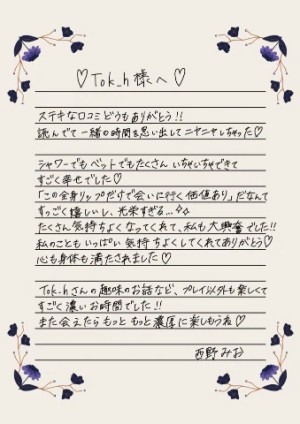 ♡Tok_h様へ♡
ステキな口コミどうもありがとう!!
読んでて一緒の時間を思い出してニヤニヤしちゃった♡
シャワーでもベットでもたくさんいちゃいちゃできて
すごく幸せでした♡
「この全身リップだけで会いに行く価値あり」だなんて
すっごく嬉しいし、光栄すぎる...✧✧
たくさん気持ちよくなってくれて、私も大興奮でした!!
私のこともいっぱい気持ちよくしてくれてありがとう♡
心も身体も満たされました♡
Tok_hさんの趣味のお話など、プレイ以外も楽しくて
すごく濃いお時間でした!!
また会えたらもっともっと濃厚に楽しもうね♡
西野みお